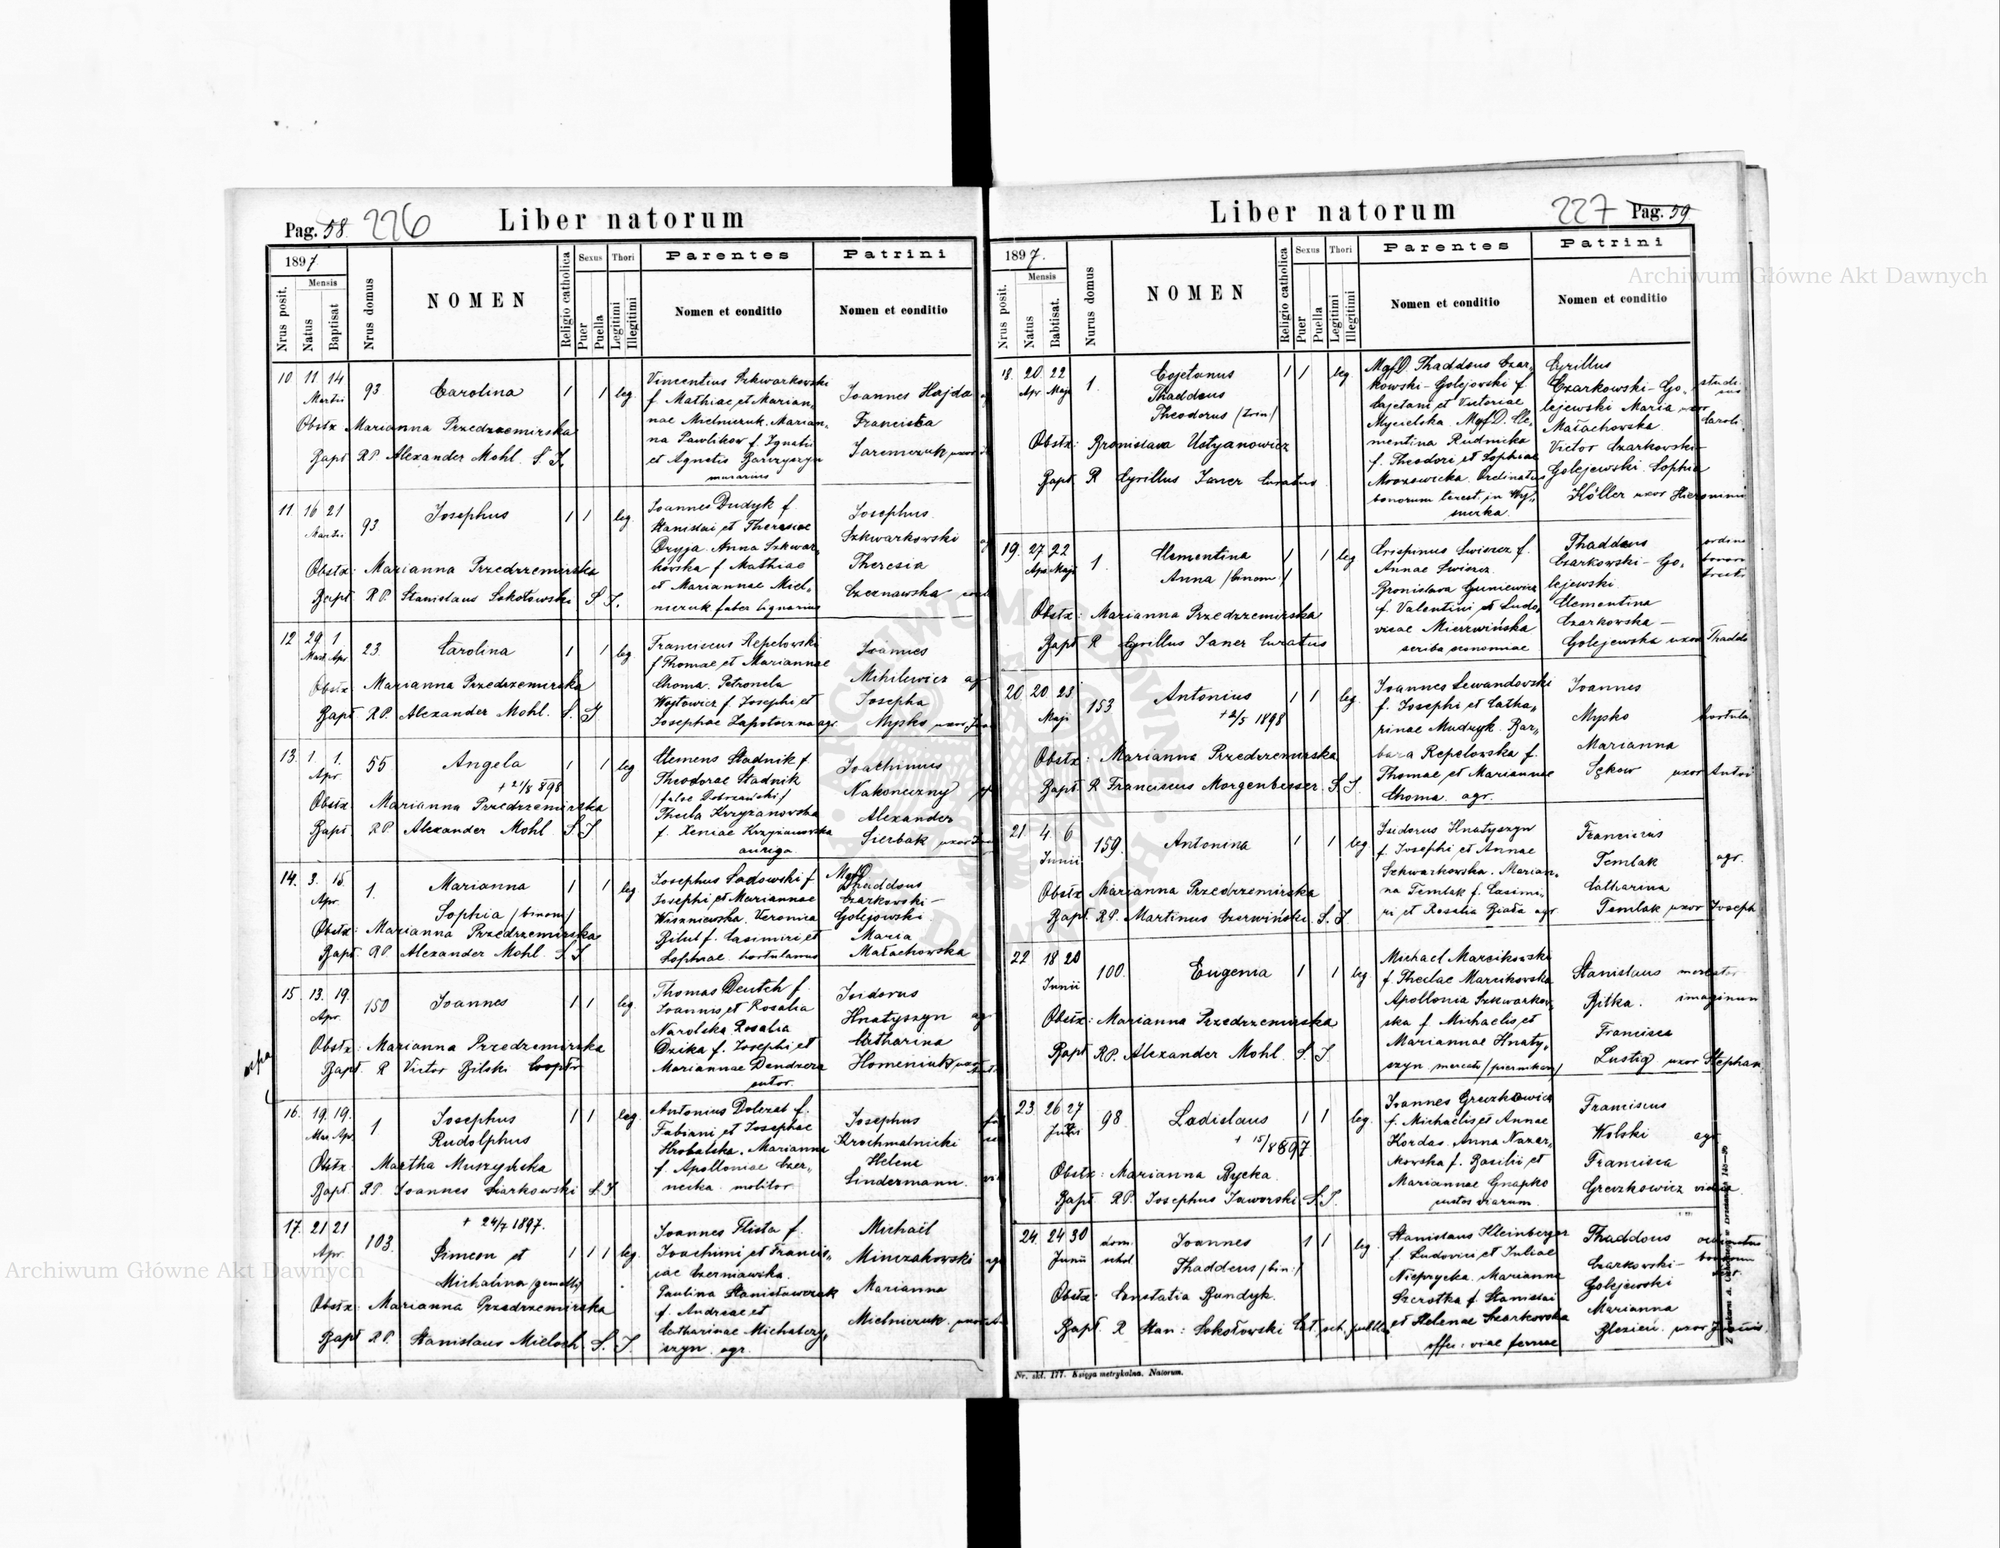 Pag. 58 226
Liber natorum
1897
Nrus posit.
Mensis
Natus
Baptisat
Nrus domus
NOMEN
Religio catholica
Sexus
Puer
Puella
Thori
Legitimi
Illegitimi
Parentes
Nomen et conditio
Patrini
Nomen et conditio
10 11 14 93 Carolina 1 1 leg.
Martii
Obstx Marianna Przedrzemirska
Bapt RP Alexander Mohl. S. J.
Vincentius Szkwarkowski
f. Mathiae et Marian,,
nae Mielniczuk. Marian,,
na Pawlikow f. Ignatii
et Agnetis Barczyszyn
murarius
Joannes Hajda
Franciska
Jaremczuk uxor
11 16 21 93 Josephus 1 1 leg
Obstx: Marianna Przedrzemirska
Bapt RP. Stanislaus Sokołowski S J.
Joannes Dudyk f.
Stanislai et Theresiae
Dryja. Anna Szkwar,,
kowska f. Mathiae
et Mariannae Miel,,
niczuk faber lignarius
Josephus
Szkwarkowski
Theresia
Czernawska
12 29 1. 23. Carolina 1 1 leg.
Mart. Apr
Obstx Marianna Przedrzemirska
Bapt. RP. Alexander Mohl. S. J
Franciscus Repelowski
f Thomae et Mariannae
Choma. Petronela
Wojtowicz f. Josephi et
Josephae Zapotoczna agr.
Joannes
Mihilewicz ag
Josepha
Mysko uxor
13. 1. 1. 55 Angela 1 1 leg
Apr
+ 21/8 898
Obstx. Marianna Przedrzemirska
Bapt. RP. Alexander Mohl S J
Clemens Stadnik f.
Theodorae Stadnik
/false Dobrzański/
Thecla Krzyżanowska
f. Xeniae Krzyżanowska
auriga.
Joachimus
Nakoneczny
Alexander
Sierbak uxor
14. 3. 15. 1. Marianna 1 1 leg
Apr.
Sophia /binom/
Obstx: Marianna Przedrzemirska
Bapt. RP. Alexander Mohl. S J
Josephus Sadowski f
Josephi et Mariannae
Wiszniewska. Veronica
Bilut f. Casimiri et
Sophiae. hortulanus
MgfD
Thaddeus
Czarkowski-
Golejowski
Maria
Małachowska
15. 13. 19. 150 Joannes 1 1 leg.
Apr.
Obstx: Marianna Przedrzemirska
Bapt R Victor Bilski Cooptr
Thomas Deutch f.
Joannis et Rosalia
Narolska Rosalia
Dzika f. Josephi et
Mariannae Dendzera
sutor.
Isidorus
Hnatyszyn ag
Catharina
Homeniuk uxor
16. 19. 19. 1 Josephus 1 1 leg.
Mar. Apr.
Rudolphus
Obstx. Martha Muszyńska
Bapt. RP. Joannes Siarkowski S J
Antonius Dolezal f.
Fabiani et Josephae
Hrobalska. Marianna
f. Apolloniae Czer,,
necka. molitor.
Josephus
Krochmalnicki
Helena
Lindermann.
17. 21 21 103. + 24/7 1897.
Apr.
Simeon et 1 1 1 leg.
Michalina /gemelli/
Obstx: Marianna Przedrzemirska
Bapt R.P. Stanislaus Mieloch S. J.
Joannes Flista f.
Joachimi et Francis,,
cae Czerniawska.
Paulina Stanisławczuk
f. Andreae et
Catharinae Michalczy,,
szyn. agr.
Michaël
Minczakowski agr
Marianna
Mielniczuk. uxor
Liber natorum
227 Pag. 59
1897.
Nrus posit.
Mensis
Natus
Babtisat.
Nurus domus
NOMEN
Religio catholica
Sexus
Puer
Puella
Thori
Legitimi
Illegitimi
Parentes
Nomen et conditio
Patrini
Nomen et conditio
18. 20. 22 1. Cajetanus 1 1 leg.
Apr. Maji
Thaddeus
Theodorus /trin/
Obstx: Bronislava Ustyanowicz
Bapt. R Cyrillus Janer Curatus
MgfD. Thaddeus Czar,,
kowski-Golejowski f.
Cajetani et Victoriae
Mycielska. MgfD. Cle,,
mentina Rudnicka
f. Theodori et Sophiae
Mrozowicka. Ordinatus
bonorum terest. in Wy,,
suczka.
Cyrillus
Czarkowski-Go,,
lejewski Maria uxor
Małachowska.
Victor Czarkowski-
Golejewski. Sophia
Höller uxor Hieronimi
19. 27 22 1. Clementina 1 1 leg
Apr Maji
Anna /binom:/
Obstx: Marianna Przedrzemirska
Bapt R Cyrillus Janer Curatus
Crispinus Swiercz f.
Annae Swiercz.
Bronislava Guniewicz
f. Valentini et Ludo,,
vicae Mierzwińska
scriba oeconomiae
Thaddeus
Czarkowski-Go,,
lejewski
Clementina
Czarkowska-
Golejewska uxor Thadde
20 20 23 153 Antonius 1 1 leg
Maji
+ 2/5 1898
Obstx: Marianna Przedrzemirska
Bapt. R Franciscus Morgenbesser. S. J.
Joannes Lewandowski
f. Josephi et Catha,,
rinae Mudryk. Bar,,
bara Repelowska f.
Thomae et Mariannae
Choma. agr.
Joannes
Mysko hortula
Marianna
Sękow uxor Antoi
21. 4. 6 159. Antonina 1 1 leg
Junii
Obstx Marianna Przedrzemirska
Bapt. RP. Martinus Czerwiński. S. J
Isidorus Hnatyszyn
f. Josephi et Annae
Szkwarkowska. Marian,,
na Temlak f. Casimi,,
ri et Rosalia Biała agr.
Franciscus
Temlak agr.
Catharina
Temlak uxor Joseph
22 18 20 100. Eugenia 1 1 leg.
Junii
Obstx: Marianna Przedrzemirska
Bapt. RP. Alexander Mohl. S. J
Michael Marcikowski
f. Theclae Marcikowska
Apollonia Szkwarkow,,
ska f. Michaelis et
Mariannae Hnaty,,
szyn. mercat. /piernikarz/
Stanislaus mercator
Bitka. imaginum
Francisca
Lustig uxor Stephan
23. 26 27 98. Ladislaus 1 1 leg.
+ 15/8 897
Obstx: Marianna Bycka.
Bapt. RP. Josephus Jaworski S. J.
Joannes Greczkowicz
f. Michaelis et Annae
Kordas. Anna Nazar,,
kowska f. Basilii et
Mariannae Gnapko
custos viarum.
Franciscus
Wolski agr
Francisca
Greczkowicz vidua.
24 24 30 dom. schol Joannes 1 1 leg.
Junii
Thaddeus /bin:/
Obstx: Constatia Bundyk.
Bapt. R Stan: Sokołowski Cat. sch. publ
Stanislaus Kleinberger
f. Ludovici et Juliae
Nieprycka. Marianna
Szerotka f. Stanislai
et Helenae Skarkowska
offic: viae ferreae
Thaddeus ordinatus
Czarkowski- bonorum
Golejewski
Marianna
Blezień. uxor Joannis.
Nr. skł. 177. Księga metrykalna. Natorum.
Archiwum Główne Akt Dawnych
Archiwum Główne Akt Dawnych